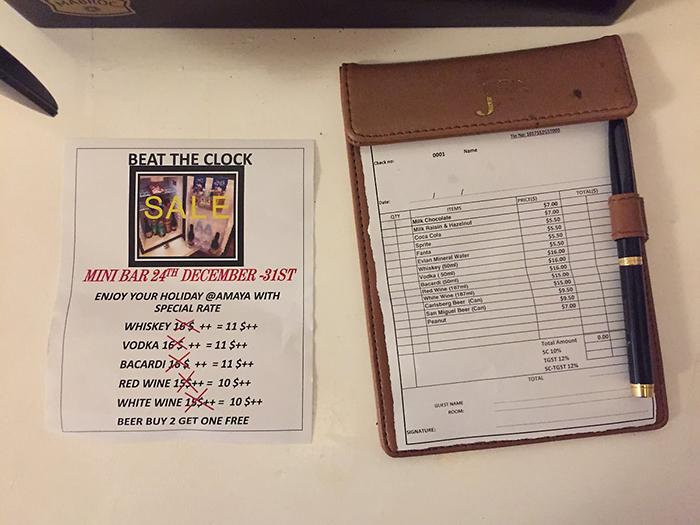 MABROC
BEAT THE CLOCK
SALE
MINI BAR 24TH DECEMBER -31ST
ENJOY YOUR HOLIDAY @AMAYA WITH
SPECIAL RATE
WHISKEY 16 $ ++ = 11 $++
VODKA 16 $ ++ = 11 $++
BACARDI 16 $ ++ = 11 $++
RED WINE 15$++ = 10 $++
WHITE WINE 15$++ = 10 $++
BEER BUY 2 GET ONE FREE
J
Tin No:
Check no: 0001 Name
Date: / /
QTY ITEMS PRICE($) TOTAL($)
Milk Chocolate $7.00
Milk Raisin & Hazelnut $7.00
Coca Cola $5.50
Sprite $5.50
Fanta $5.50
Evian Mineral Water $5.50
Whiskey (50ml) $16.00
Vodka ( 50ml) $16.00
Bacardi (50ml) $16.00
Red Wine (187ml) $15.00
White Wine (187ml) $15.00
Carlsberg Beer (Can) $9.50
San Miguel Beer (Can) $9.50
Peanut $7.00
Total Amount 0.00
SC 10%
TGST 12%
SC-TGST 12%
TOTAL
GUEST NAME
ROOM:
SIGNATURE: